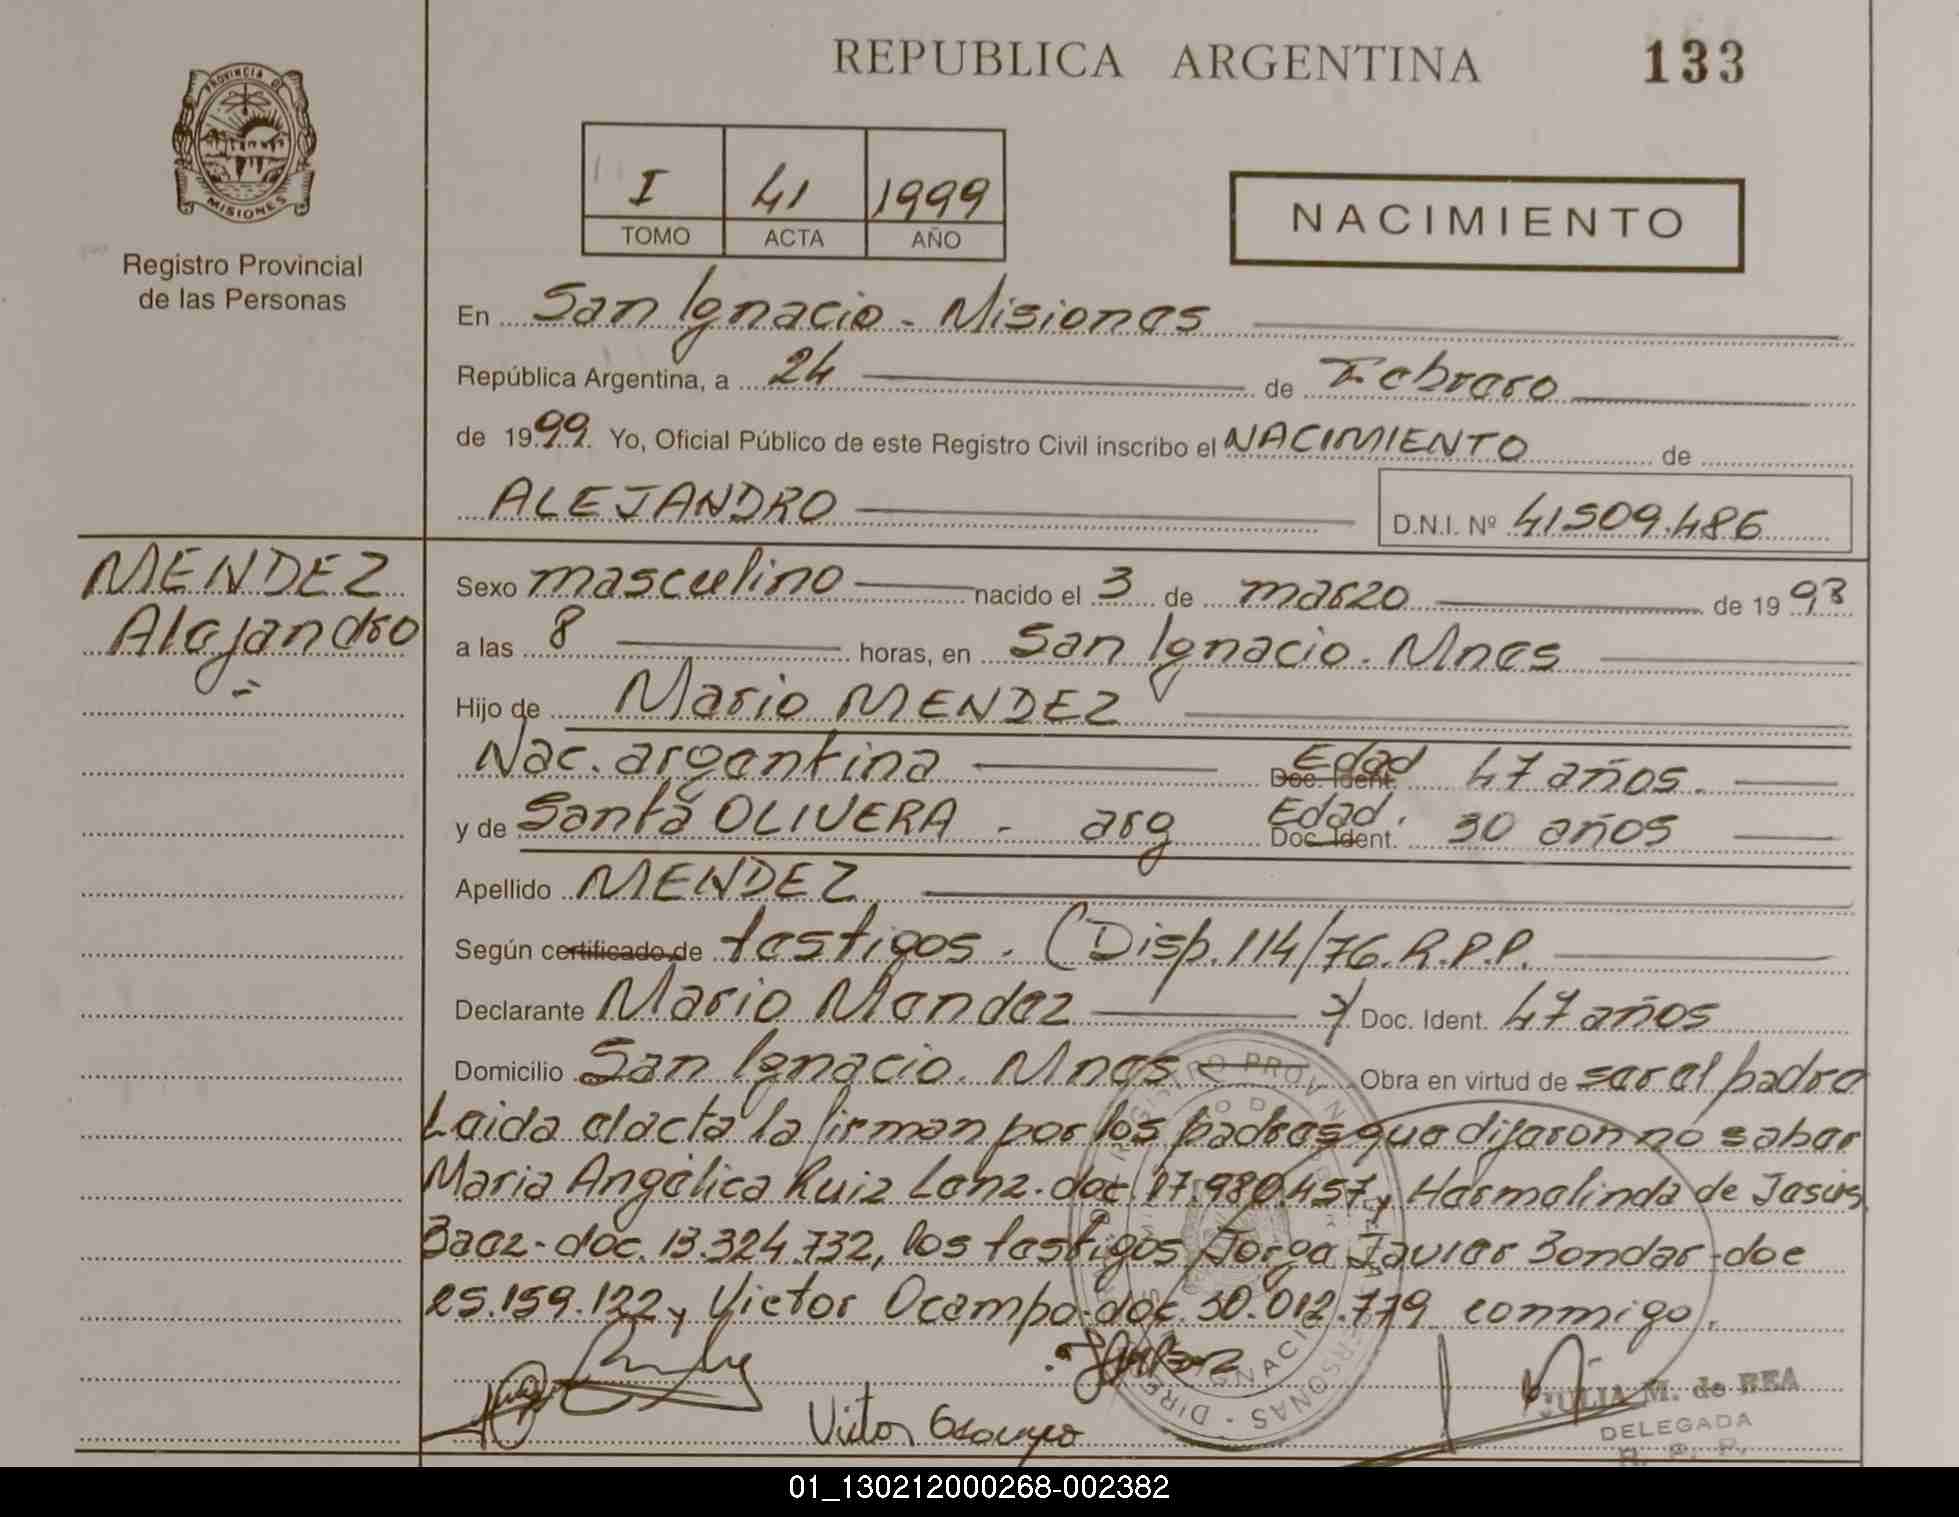 REPUBLICA ARGENTINA
133
PROVINCIA DE
MISIONES
Registro Provincial
de las Personas
I 41 1999
TOMO ACTA AÑO
NACIMIENTO
En San Ignacio - Misiones
República Argentina, a 24 de Febrero
de 1999. Yo, Oficial Público de este Registro Civil inscribo el NACIMIENTO de
ALEJANDRO
D.N.I. Nº 41509.486
MENDEZ
Alejandro
Sexo masculino nacido el 3 de marzo de 1993
a las 8 horas, en San Ignacio. Mnes
Hijo de Mario MENDEZ
Nac. argentina Edad Doc. Ident. 47 años.
y de Santa OLIVERA - arg Edad. Doc. Ident. 30 años
Apellido MENDEZ
Según certificado de testigos. (Disp. 114/76. R.P.P.
Declarante Mario Mendez Doc. Ident. 47 años
Domicilio San Ignacio. Mnes Obra en virtud de ser el padre
Leida el acta la firman por los padres que dijeron no saber
Maria Angélica Ruiz Lenz. doc. 17.980.457 y Hermelinda de Jesús
Baez - doc. 13.324.732, los testigos Jorge Javier Bondar - doc
25.159.122 y Victor Ocampo - doc. 30.012.779 conmigo.
Victor Ocampo
JULIA M. de REA
DELEGADA
R. P. P.
01_130212000268-002382